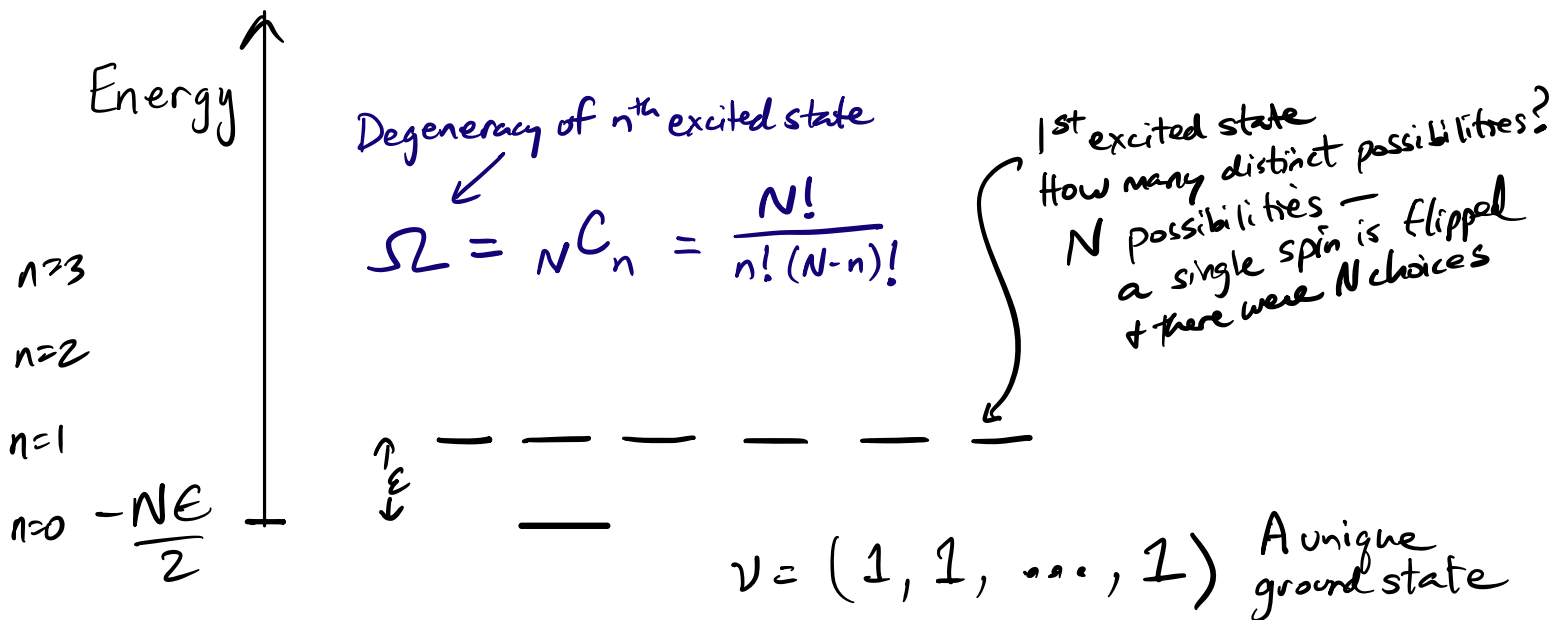 Energy
Degeneracy of nᵗʰ excited state
Ω = NCn = N! / n! (N-n)!
1st excited state
How many distinct possibilities?
N possibilities —
a single spin is flipped
+ there were N choices
n=3
n=2
n=1
ε
n=0 -Nε/2
ν = (1, 1, ..., 1)
A unique
ground state